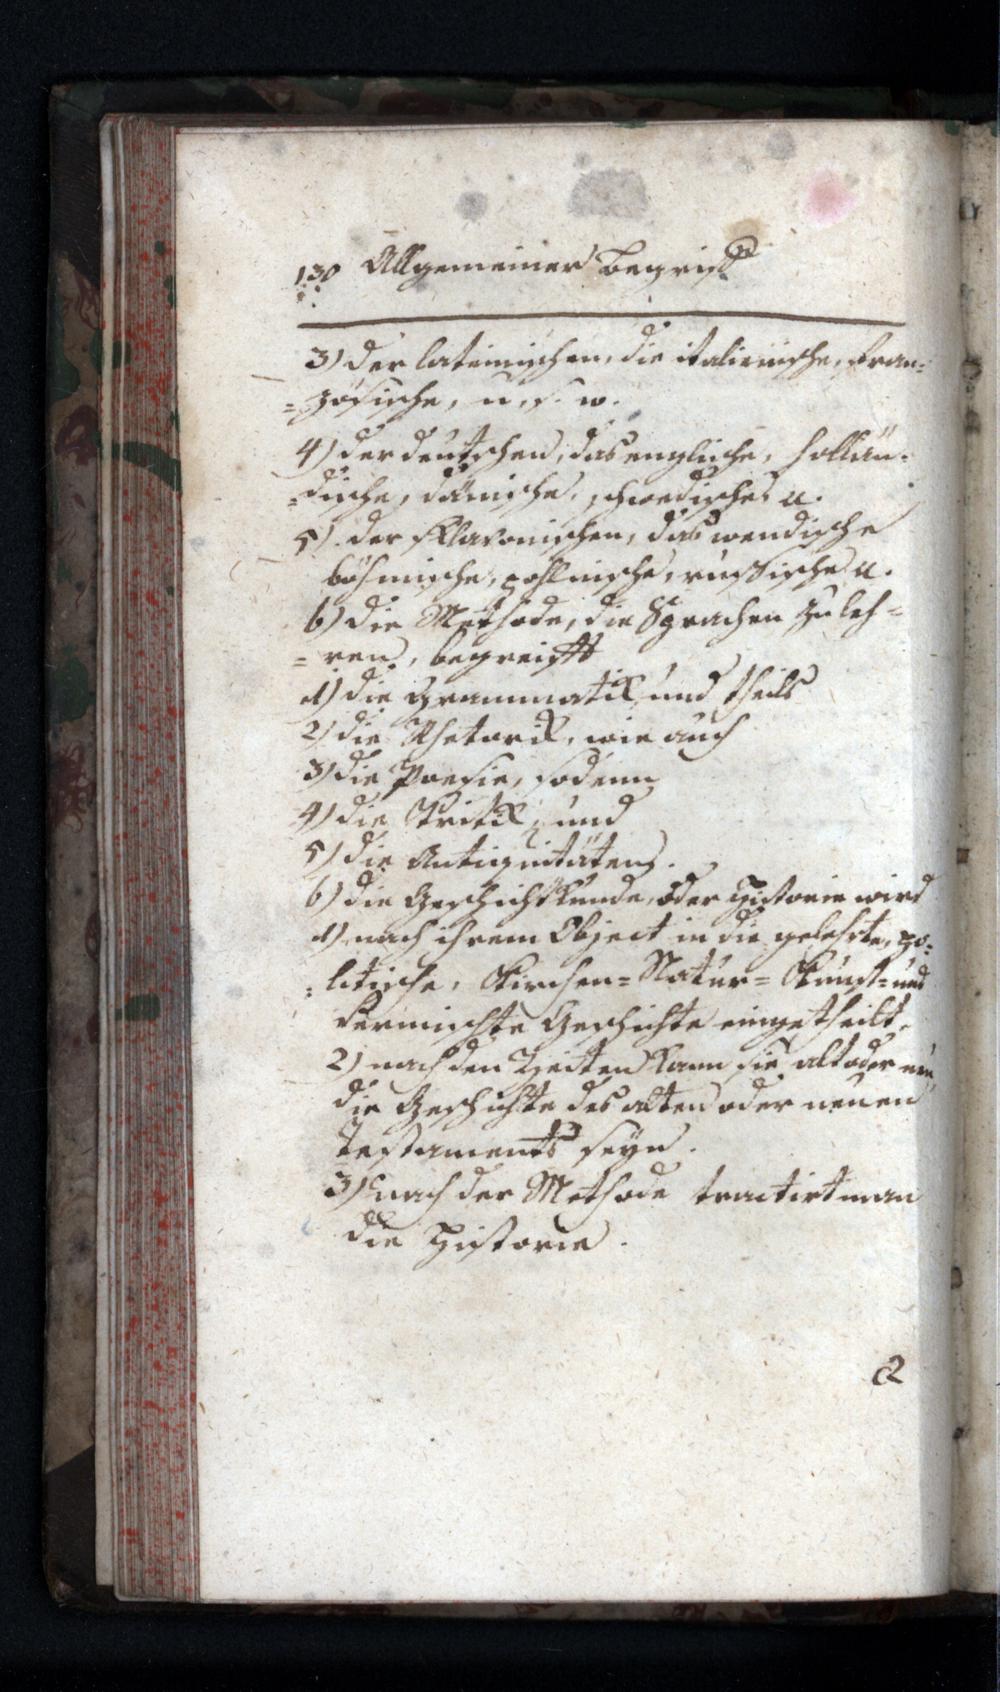 130 Allgemeiner Begriff
3) der lateinischen, die italienische, fran=
=zösische, u. s. w.
4) der deutschen, das englische, hollän=
=dische, dänische, schwedische u.
5) der sklavonischen, das wendische
böhmische, pohlnische, russische u.
6) die Methode, die Sprachen zu leh=
=ren, begreifft
1) die Grammatik, und theils
2) die Rhetorik, wie auch
3) die Poesie, sodenn
4) die Critik, und
5) die Antiquitäten.
6) die Geschichtkunde, oder Historie wird
1) nach ihrem Object in die gelehrte, po=
=litische, Kirchen= Natur= Kunst= und
vermischte Geschichte eingetheilt.
2) nach den Zeiten kann sie alt oder neu,
die Geschichte des alten oder neuen
Testaments seyn.
3) nach der Methode tractirt man
die Historie.
2